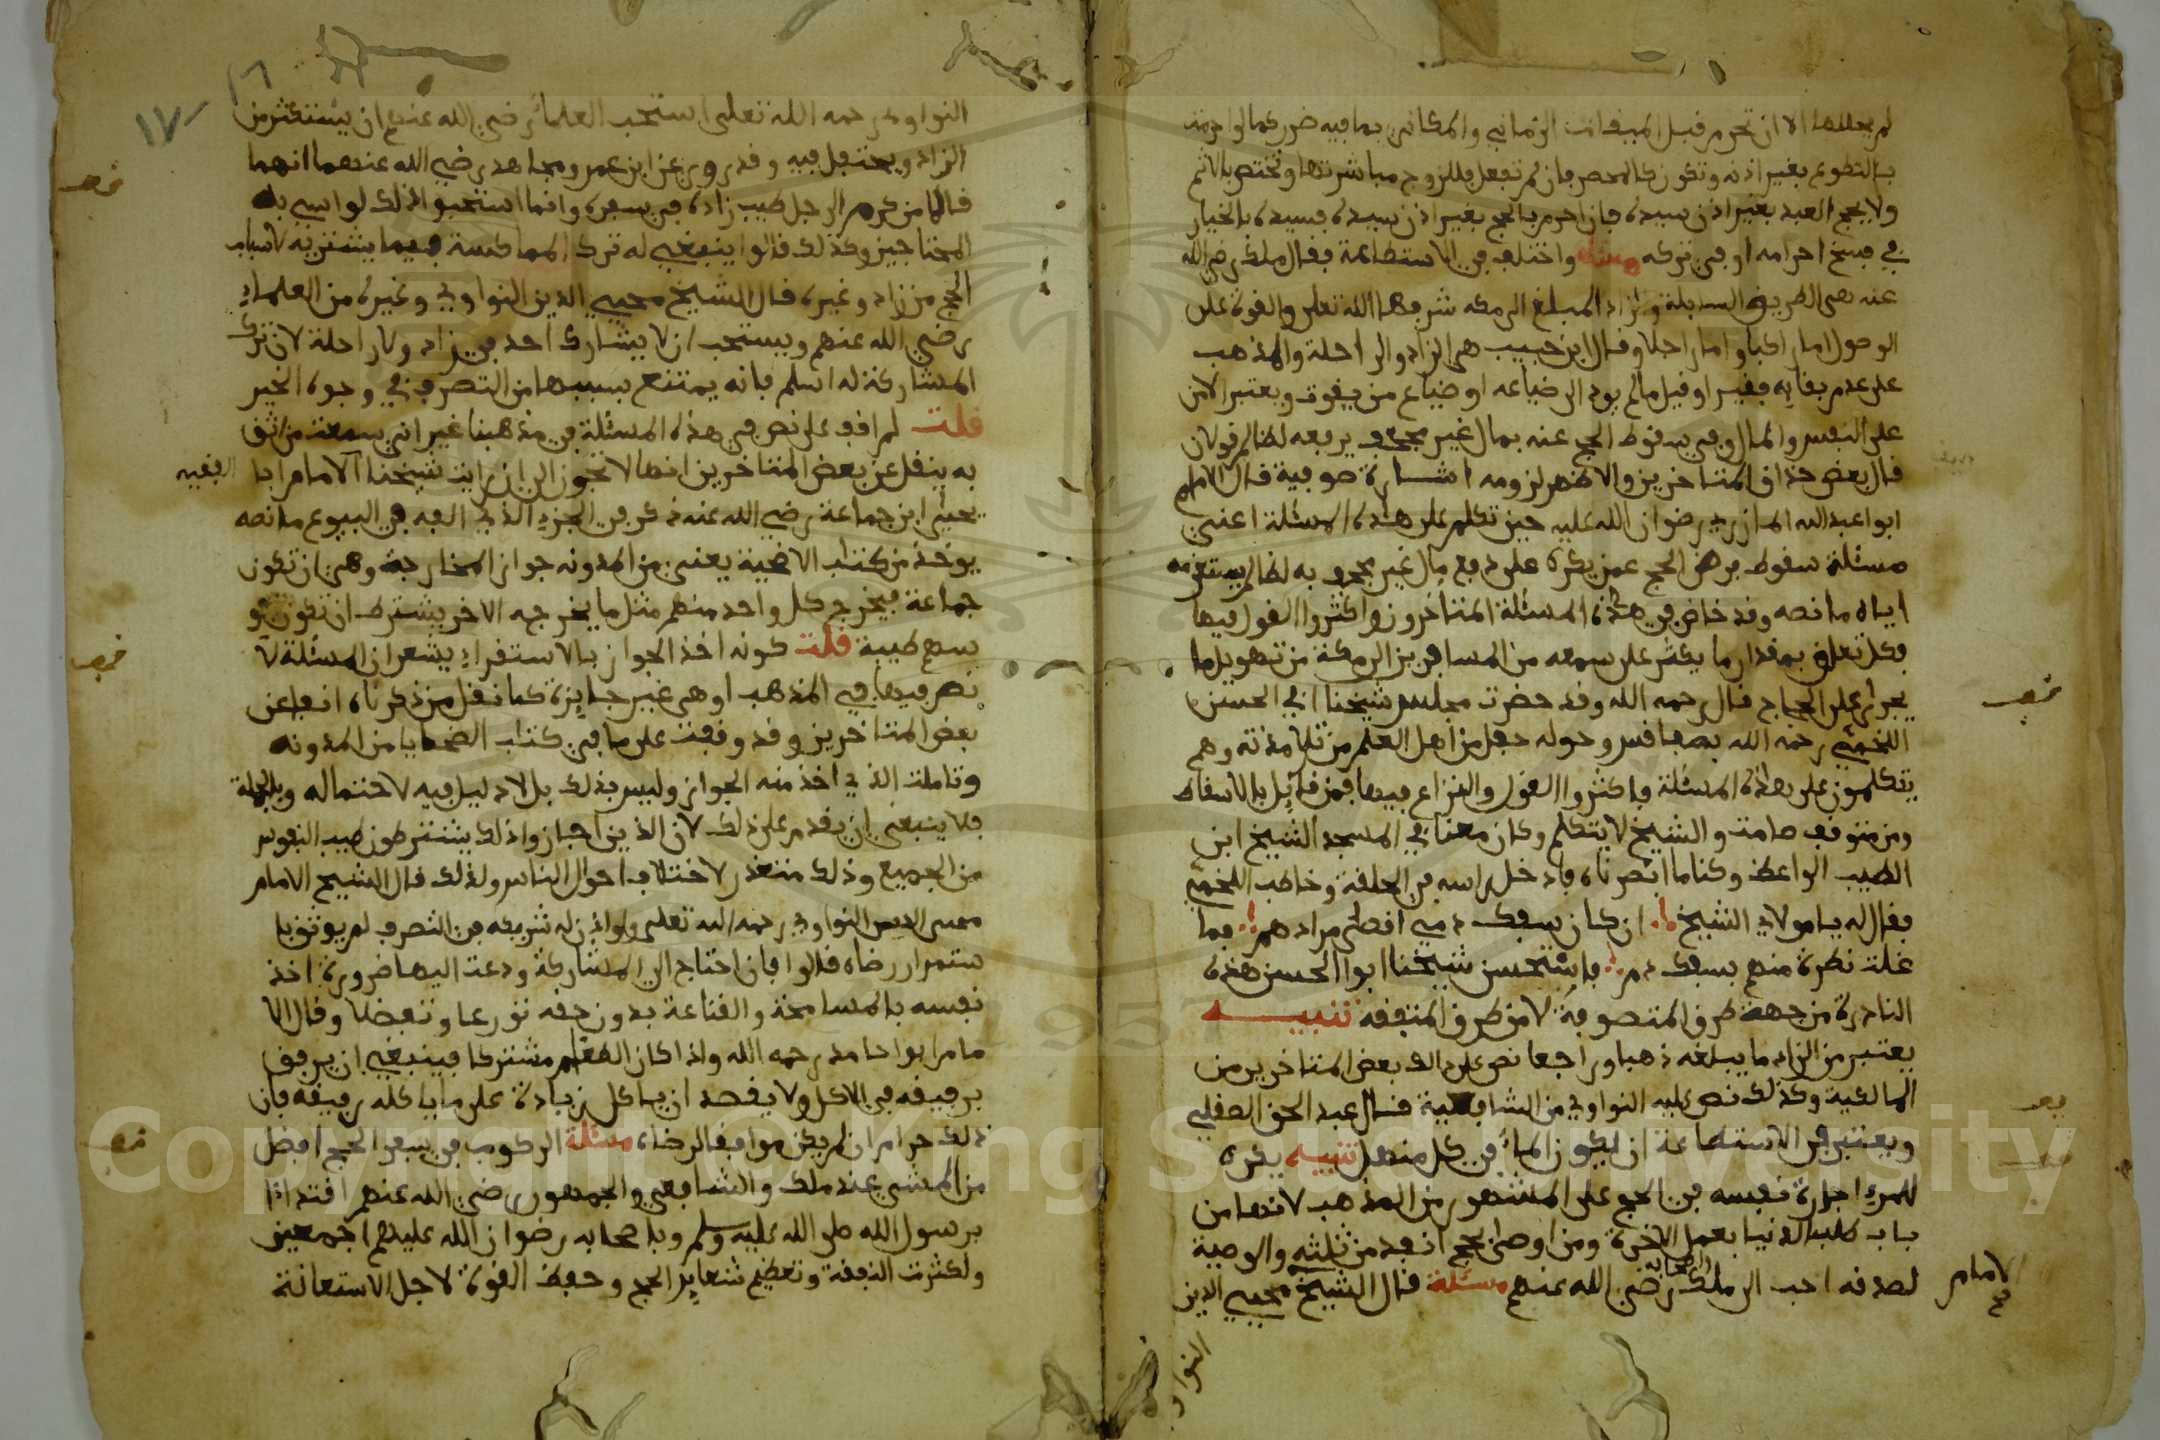 لم يحللها الا ان تحرم قبل الميقات الزماني والمكاني بما فيه ضرر كما لو احرمت
بالتطوع بغير اذنه وتكون كالمحصر فان لم تفعل فللزوج مباشرتها وتختص بالاثم
ولا يحج العبد بغير اذن سيده فان احرم بالحج بغير اذن سيده فسيده بالخيار
في فسخ احرامه او في تركه مسئلة واختلف في الاستطاعة فقال ملك رضي الله
عنه هي الطريق السابلة والزاد المبلغ الى مكه شرفها الله تعلى والقوة على
الوصول اما راكبا واما راجلا وقال ابن حبيب هي الزاد والراحلة والمذهب
على عدم بقايه فقيرا وقيل ما لم يود الى ضياعه او ضياع من يقوت ويعتبر الامن
على النفس والمال وفي سقوط الحج عنه بمال غير مجحف يدفعه لظالم قولان
قال بعض حذاق المتاخرين والاظهر لزومه اشارة صوفية قال الامام
ابو عبد الله المازري رضوان الله عليه حين تكلم على هذه المسئلة اعني
مسئلة سقوط فرض الحج عمن يكره على دفع مال غير مجحف به لظالم يمتنعه
اياه ما نصه وقد خاض في هذه المسئلة المتاخرون واكثروا القول فيها
وكل تعلق بمقدار ما يكثر على سمعه من المسافرين الى مكة من تهويل ما
يجرى على الحجاج قال رحمه الله وقد حضرت مجلس شيخنا ابي الحسن
اللخمي رحمه الله بصفاقس وحوله حفل من اهل العلم من تلامذته وهم
يتكلمون على هذه المسئلة فاكثروا القول والنزاع فيها فمن قايل بالاسقاط
ومن متوقف صامت والشيخ لا يتكلم وكان معنا في المسجد الشيخ ابن
الطيب الواعظ وكنا ما ابصرناه فادخل راسه في الحلقة وخاطب اللخمي
فقال له يا مولاي الشيخ ان كان سفك دمي اقصى مرادهم فما
غلت نظرة منهم بسفك دم فاستحسن شيخنا ابو الحسن هذه
النادرة من جهة طرق المتصوفة لا من طرق المتفقه تنبيه
يعتبر من الزاد ما يبلغه ذهبا وراجعا نص على ذلك بعض المتاخرين من
المالكية وكذلك نص عليه النواوي من الشافعية قال عبد الحق الصقلي
ويعتبر في الاستطاعة ان يكون الماء في كل منهل تنبيه يكره
للمرء اجارة نفسه في الحج على المشهور من المذهب لانها من
باب طلب الدنيا بعمل الاخرة ومن اوصى بحج انفذ من ثلثه والوصية
لصدقه احب الى ملك رضي الله عنهم مسئلة قال الشيخ محيي الدين
الامام
النواوي
النواوي رحمه الله تعلى استحب العلماء رضي الله عنهم ان يستكثر من
الزاد ويحتفل فيه وقد روي عن ابن عمر ومجاهد رضي الله عنهما انهما
قالا من كرم الرجل طيب زاده في سفره وانما استحبوا ذلك لواسي به
المحتاجين وكذلك قالوا ينبغي له ترك المماكسة فيما يشتريه لاسباب
الحج من زاد وغيره قال الشيخ محيي الدين النواوي وغيره من العلماء
رضي الله عنهم ويستحب ان لا يشارك احد في زاد ولا راحلة لان ترك
المشاركة له اسلم فانه يمتنع بسببها من التصرف في وجوه الخير
قلت لم اقف على نص في هذه المسئلة في مذهبنا غير اني سمعت من اثق
به ينقل عن بعض المتاخرين انها لا تجوز الى ان رايت شيخنا الامام ابا
الفقيه
يحيى ابن جماعة رضي الله عنه ذكر في الجزء الذي الفه في البيوع ما نصه
يوخذ من كتاب الاضحية يعني من المدونه جواز المخارجة وهي ان تكون
جماعة فيخرج كل واحد منهم مثل ما يخرجه الاخر بشرط ان تكون نفو
سهم طيبة قلت كونه اخذ الجواز بالاستقراء يشعر ان المسئلة لا
نص فيها في المذهب او هي غير جايزة كما نقل من ذكرناه انفا عن
بعض المتاخرين وقد وقفت على ما في كتاب الضحايا من المدونه
وتاملت الذي اخذ منه الجواز وليس بذلك بل لا دليل فيه لاحتماله وبالجملة
فلا ينبغي ان يقدم على ذلك لان الذين اجازوا ذلك يشترطون طيب النفوس
من الجميع وذلك متعذر لاختلاف احوال الناس ولذلك قال الشيخ الامام
محيي الدين النواوي رحمه الله تعلى ولو اذن له شريكه في التصرف لم يوثق با
ستمرار رضاه قالوا فان احتاج الى المشاركة ودعت اليها ضرورة اخذ
نفسه بالمسامحة والقناعة بدون حقه تورعا وتفضلا وقال الا
مام ابو حامد رحمه الله واذا كان الطعام مشتركا فينبغي ان يرفق
برفيقه في الاكل ولا يقصد ان ياكل زيادة على ما ياكله رفيقه فان
ذلك حرام ان لم يكن موافقا لرضاه مسئلة الركوب في سفر الحج افضل
من المشي عند ملك والشافعي والجمهور رضي الله عنهم اقتداءا
برسول الله صلى الله عليه وسلم وباصحابه رضوان الله عليهم اجمعين
ولكثرت النفقة وتعظيم شعاير الحج وحفظ القوة لاجل الاستعانة
١٧
١٦
Copyright © King Saud University